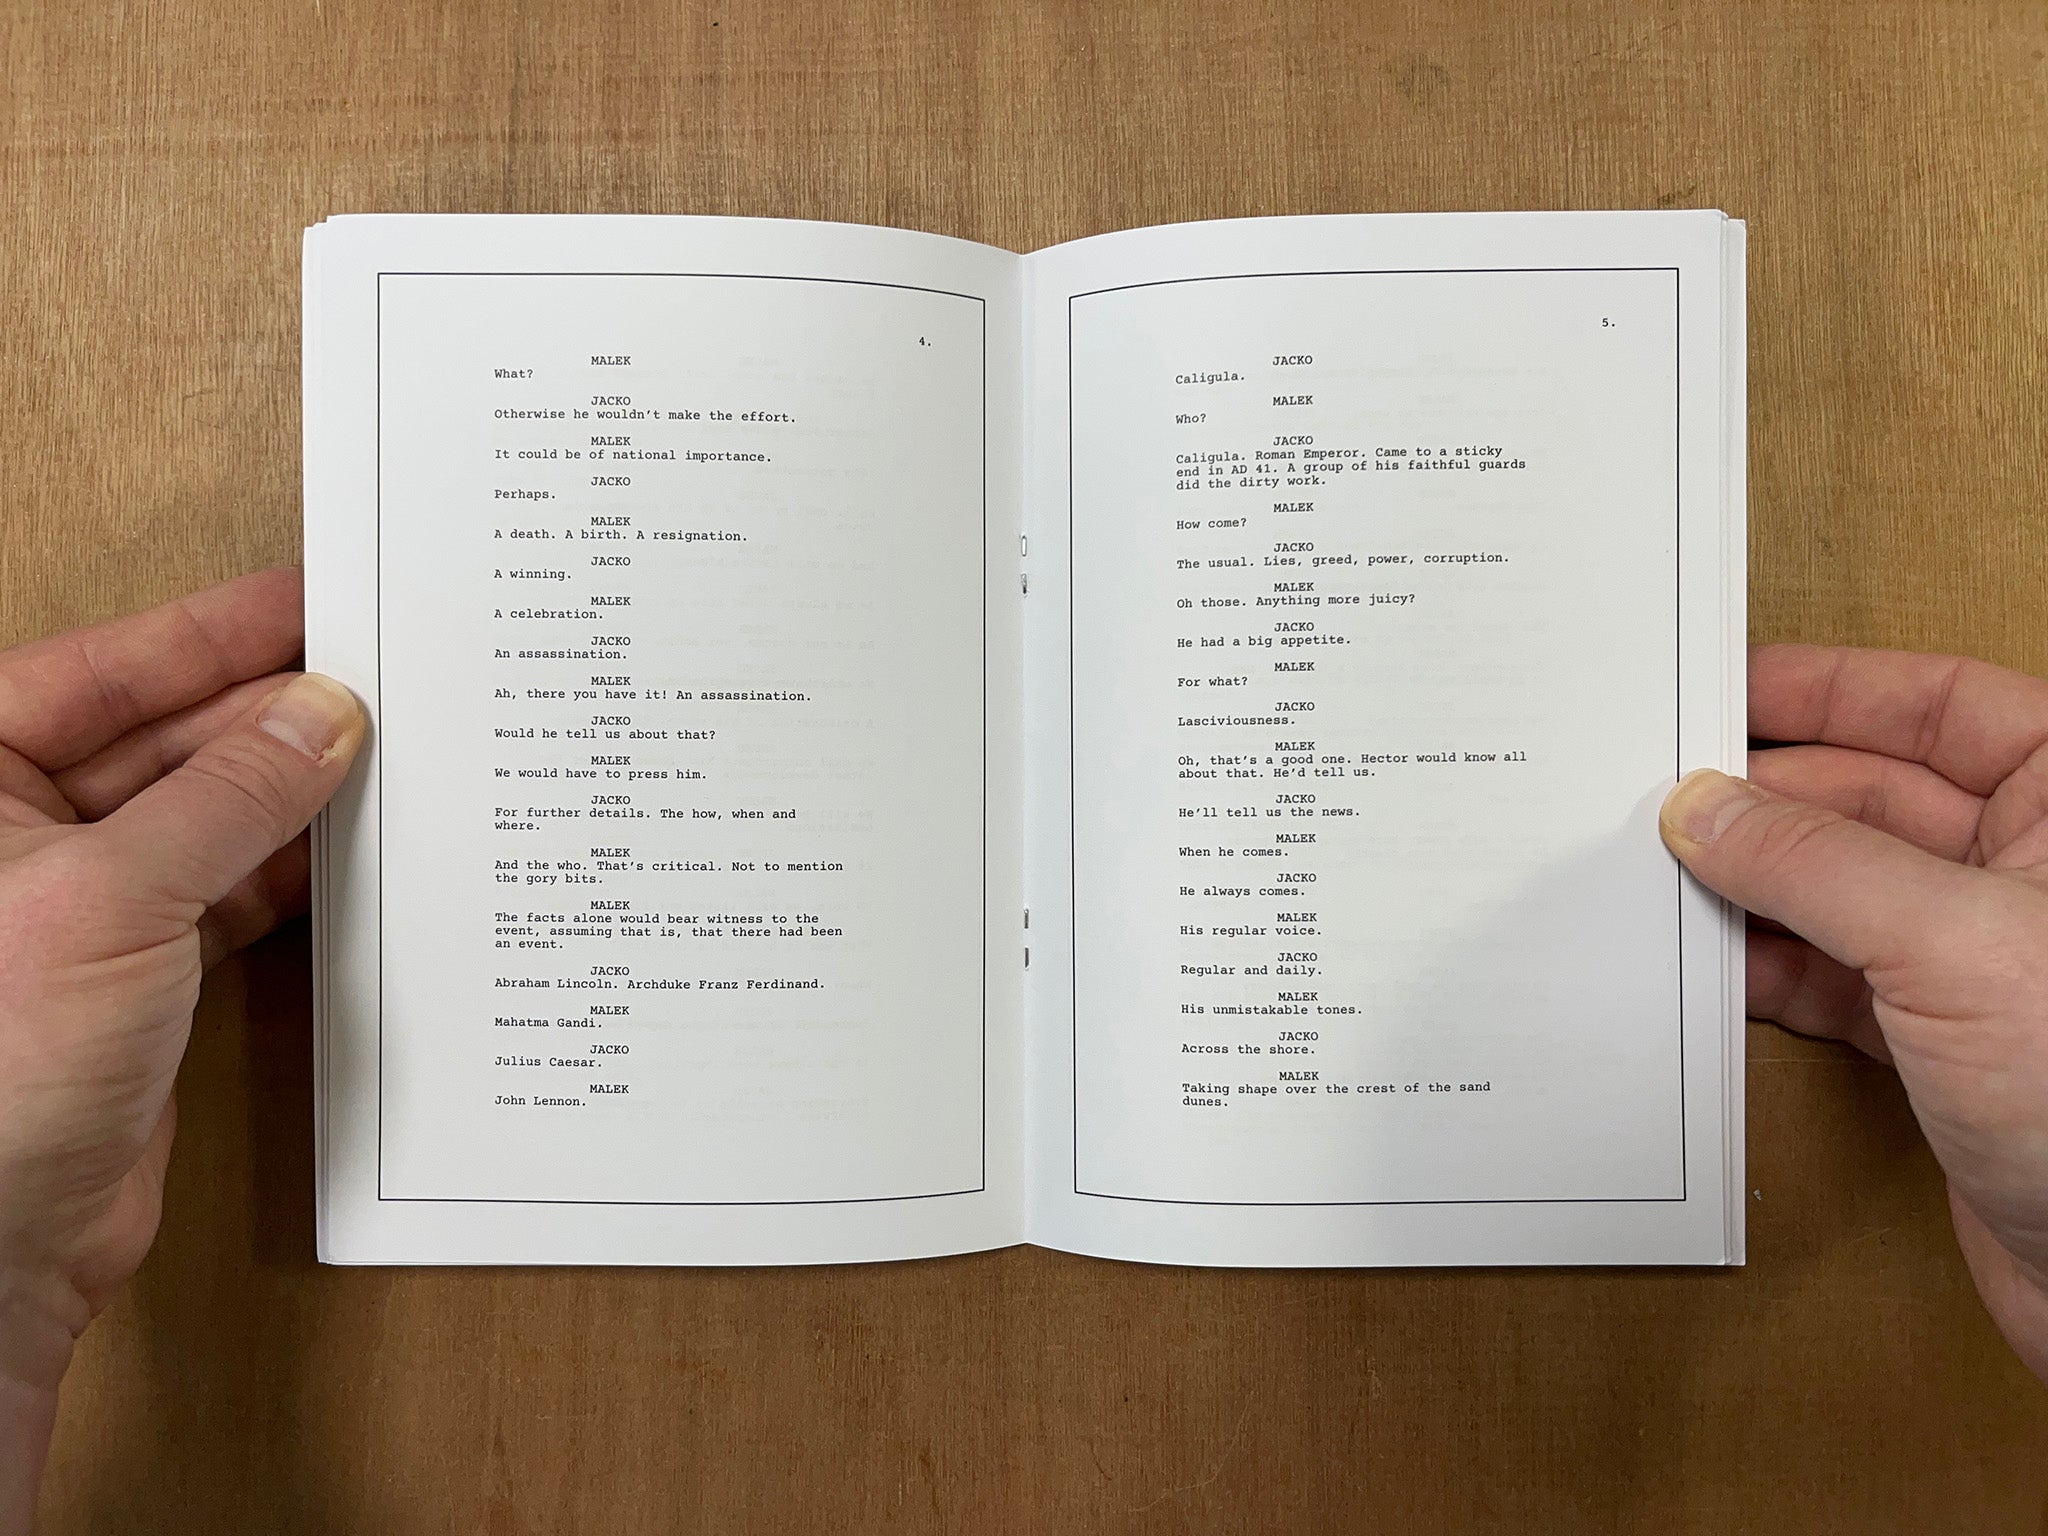 4.
MALEK
What?
JACKO
Otherwise he wouldn't make the effort.
MALEK
It could be of national importance.
JACKO
Perhaps.
MALEK
A death. A birth. A resignation.
JACKO
A winning.
MALEK
A celebration.
JACKO
An assassination.
MALEK
Ah, there you have it! An assassination.
JACKO
Would he tell us about that?
MALEK
We would have to press him.
JACKO
For further details. The how, when and
where.
MALEK
And the who. That's critical. Not to mention
the gory bits.
MALEK
The facts alone would bear witness to the
event, assuming that is, that there had been
an event.
JACKO
Abraham Lincoln. Archduke Franz Ferdinand.
MALEK
Mahatma Gandi.
JACKO
Julius Caesar.
MALEK
John Lennon.
5.
JACKO
Caligula.
MALEK
Who?
JACKO
Caligula. Roman Emperor. Came to a sticky
end in AD 41. A group of his faithful guards
did the dirty work.
MALEK
How come?
JACKO
The usual. Lies, greed, power, corruption.
MALEK
Oh those. Anything more juicy?
JACKO
He had a big appetite.
MALEK
For what?
JACKO
Lasciviousness.
MALEK
Oh, that's a good one. Hector would know all
about that. He'd tell us.
JACKO
He'll tell us the news.
MALEK
When he comes.
JACKO
He always comes.
MALEK
His regular voice.
JACKO
Regular and daily.
MALEK
His unmistakable tones.
JACKO
Across the shore.
MALEK
Taking shape over the crest of the sand
dunes.